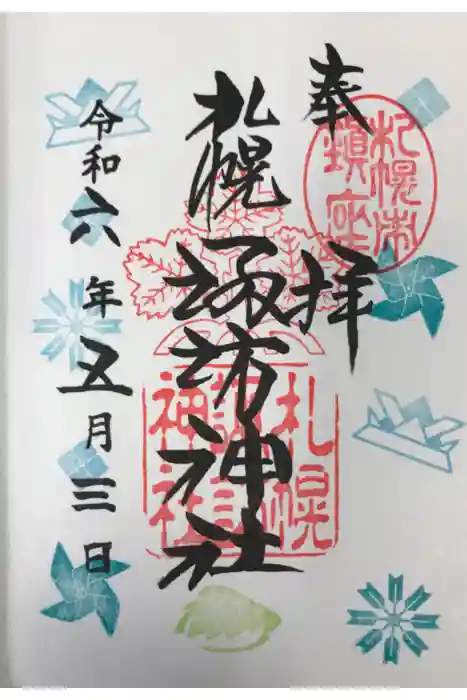 奉拝
札幌市
鎮座
札幌諏訪神社
札幌
諏訪
神社
令和六年五月三日